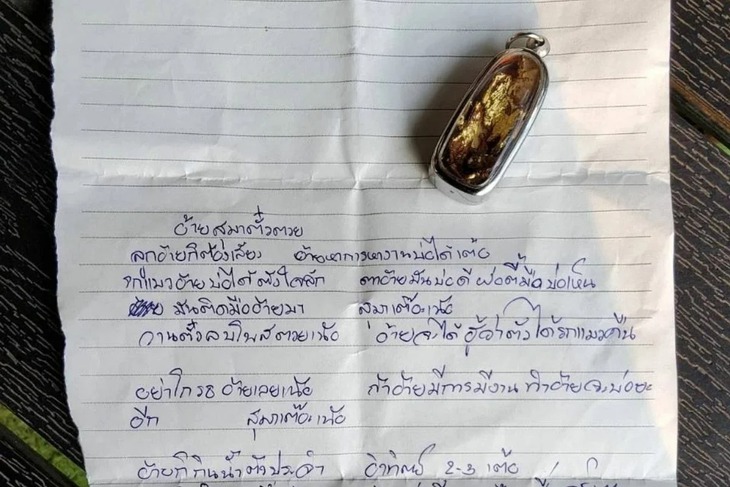 อ้ายสุมาตั๋วตวย
ลูกอ้ายก็ต้องเลี้ยง อ้ายหาการหางานบ่ได้เต้อ
รักแมวอ้ายบ่ได้ตั้งใจลัก ตาอ้ายมันบ่ดี ผ่อตี้มืดบ่เห็น
มันติดมืออ้ายมา สุมาเต๊อะเน้อ
วานตั๋วลบโพสตวยเน้อ อ้ายจะได้ ฮู้ว่าตั๋วได้รักแมวคืน
อย่าโกรธ อ้ายเลยเน้อ ถ้าอ้ายมีการมีงาน ทำอ้ายจะบ่ยะ
อีก สุมาเต๊อะเน้อ
อ้ายก็กินน้ำตั๋วประจำ อาทิตย์ 2-3 เต้อ